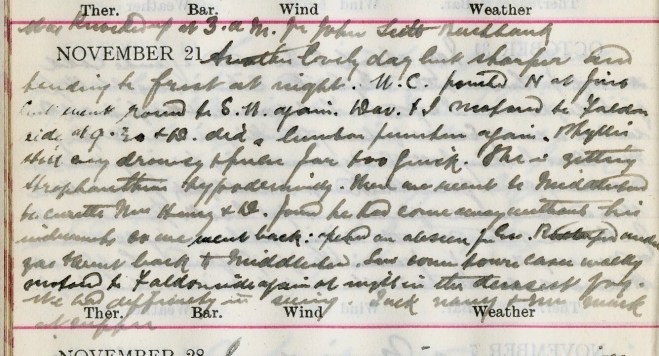 Ther. Bar. Wind Weather
Was knocked up at 3. a.m. for John
NOVEMBER 21 Another lovely day but sharper and
tending to frost at night. W.C. pointed N at first
but went round to S.W. again. Dav. & I motored to Faldon
side at 9.30 & D. did a lumbar puncture again. Phyllis
still very drowsy & pulse far too quick. She is getting
Strophanthin hypodermically. Then we went to Middlestead
to curette Mrs & D. found he had come away without his
instruments so we went back: opened an abscess for under
gas & went back to Middlestead. Saw some town cases
motored to Faldonside again at night in the densest fog.
We had difficulty in seeing. Jack Nancy & Mark
at supper
Ther. Bar. Wind Weather
NOVEMBER 28